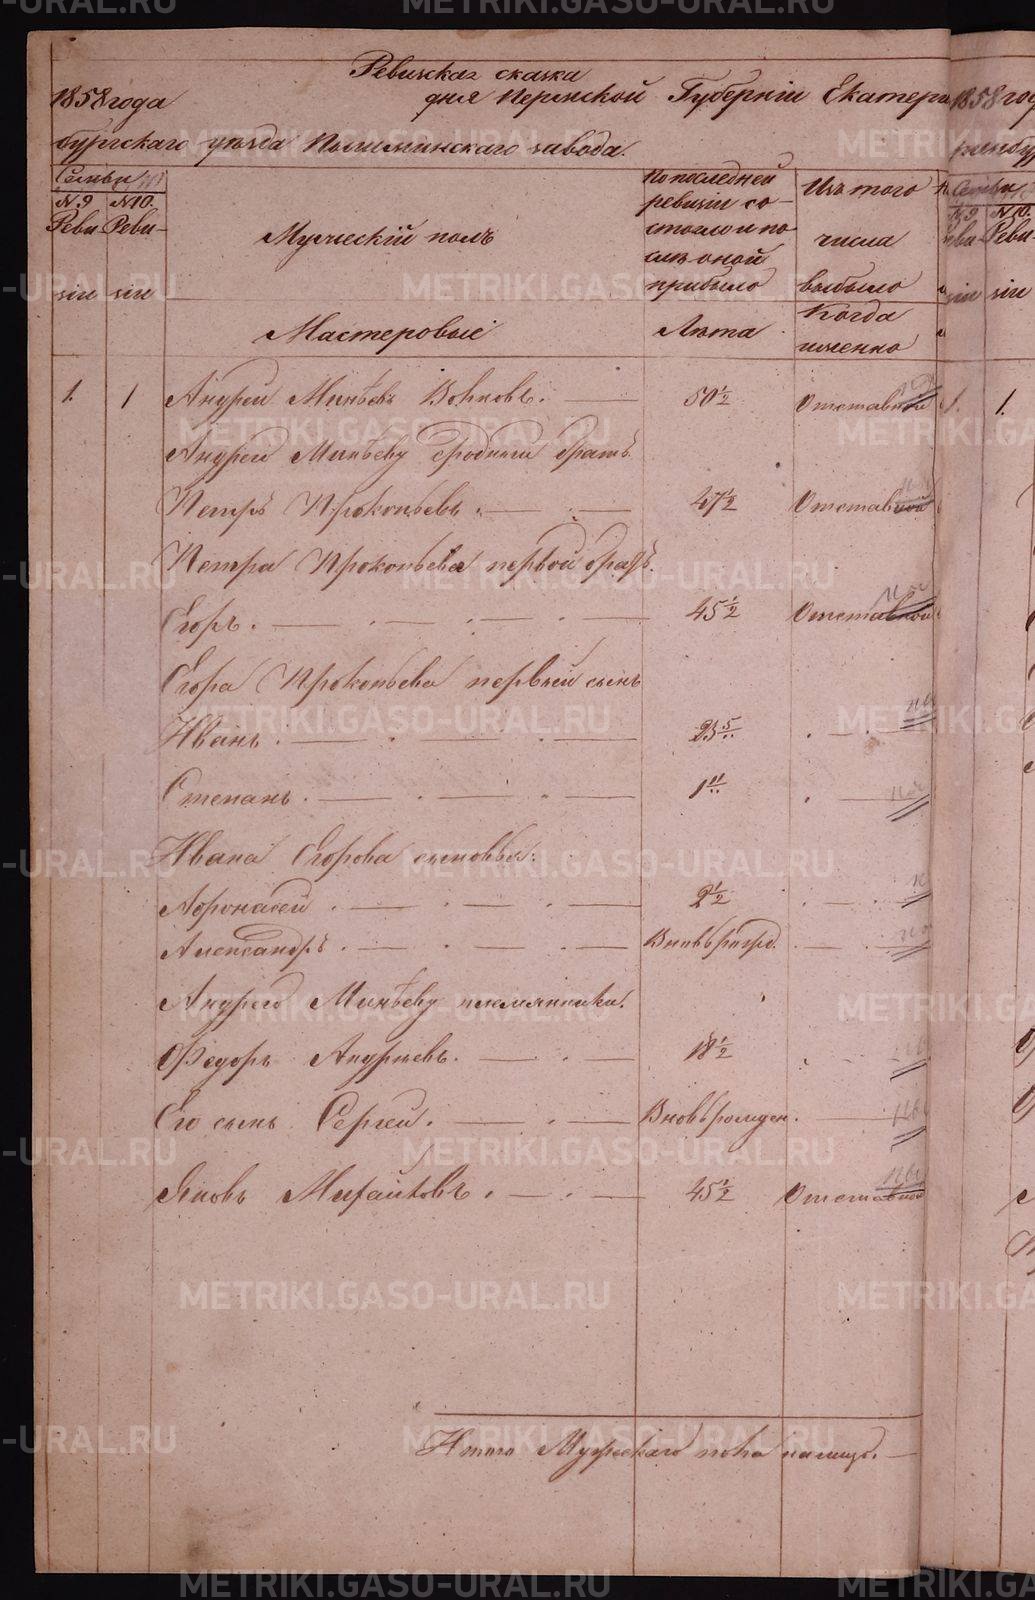 Ревизская сказка
1858 года дня Пермской Губерніи Екатерин
бургскаго уѣзда Пышминскаго завода.
Семьи
№ 9 №10.
Реви Реви-
зіи зіи
Мужескій полъ
По последней
ревизіи со-
стояло и по-
слѣ оной
прибыло
Изъ того
числа
выбыло
Мастеровые
Лѣта
Когда
именно
1. 1 Андрей Минѣевъ Волковъ. 50 ½ Отставной
Андрею Минѣеву сродный братъ
Петръ Прокопьевъ. 47 ½ Отставной
Петра Прокопьева первой братъ
Егоръ. 45 ½ Отставной
Егора Прокопьева первый сынъ
Иванъ. 23 5/..
Степанъ. 1 11/..
Ивана Егорова сыновья:
Афонасей. 2 ½
Александръ. Вновьрожд.
Андрею Минѣеву племянники.
Федоръ Андреевъ. 18 ½
Его сынъ Сергей. Вновьрожден.
Яковъ Михайловъ. 45 ½ Отставной
Итого Мужескаго пола налицо.
1858 го
Семьи
№ 9 №10.
Реви-
зіи зіи
1. 1.
METRIKI.GASO-URAL.RU